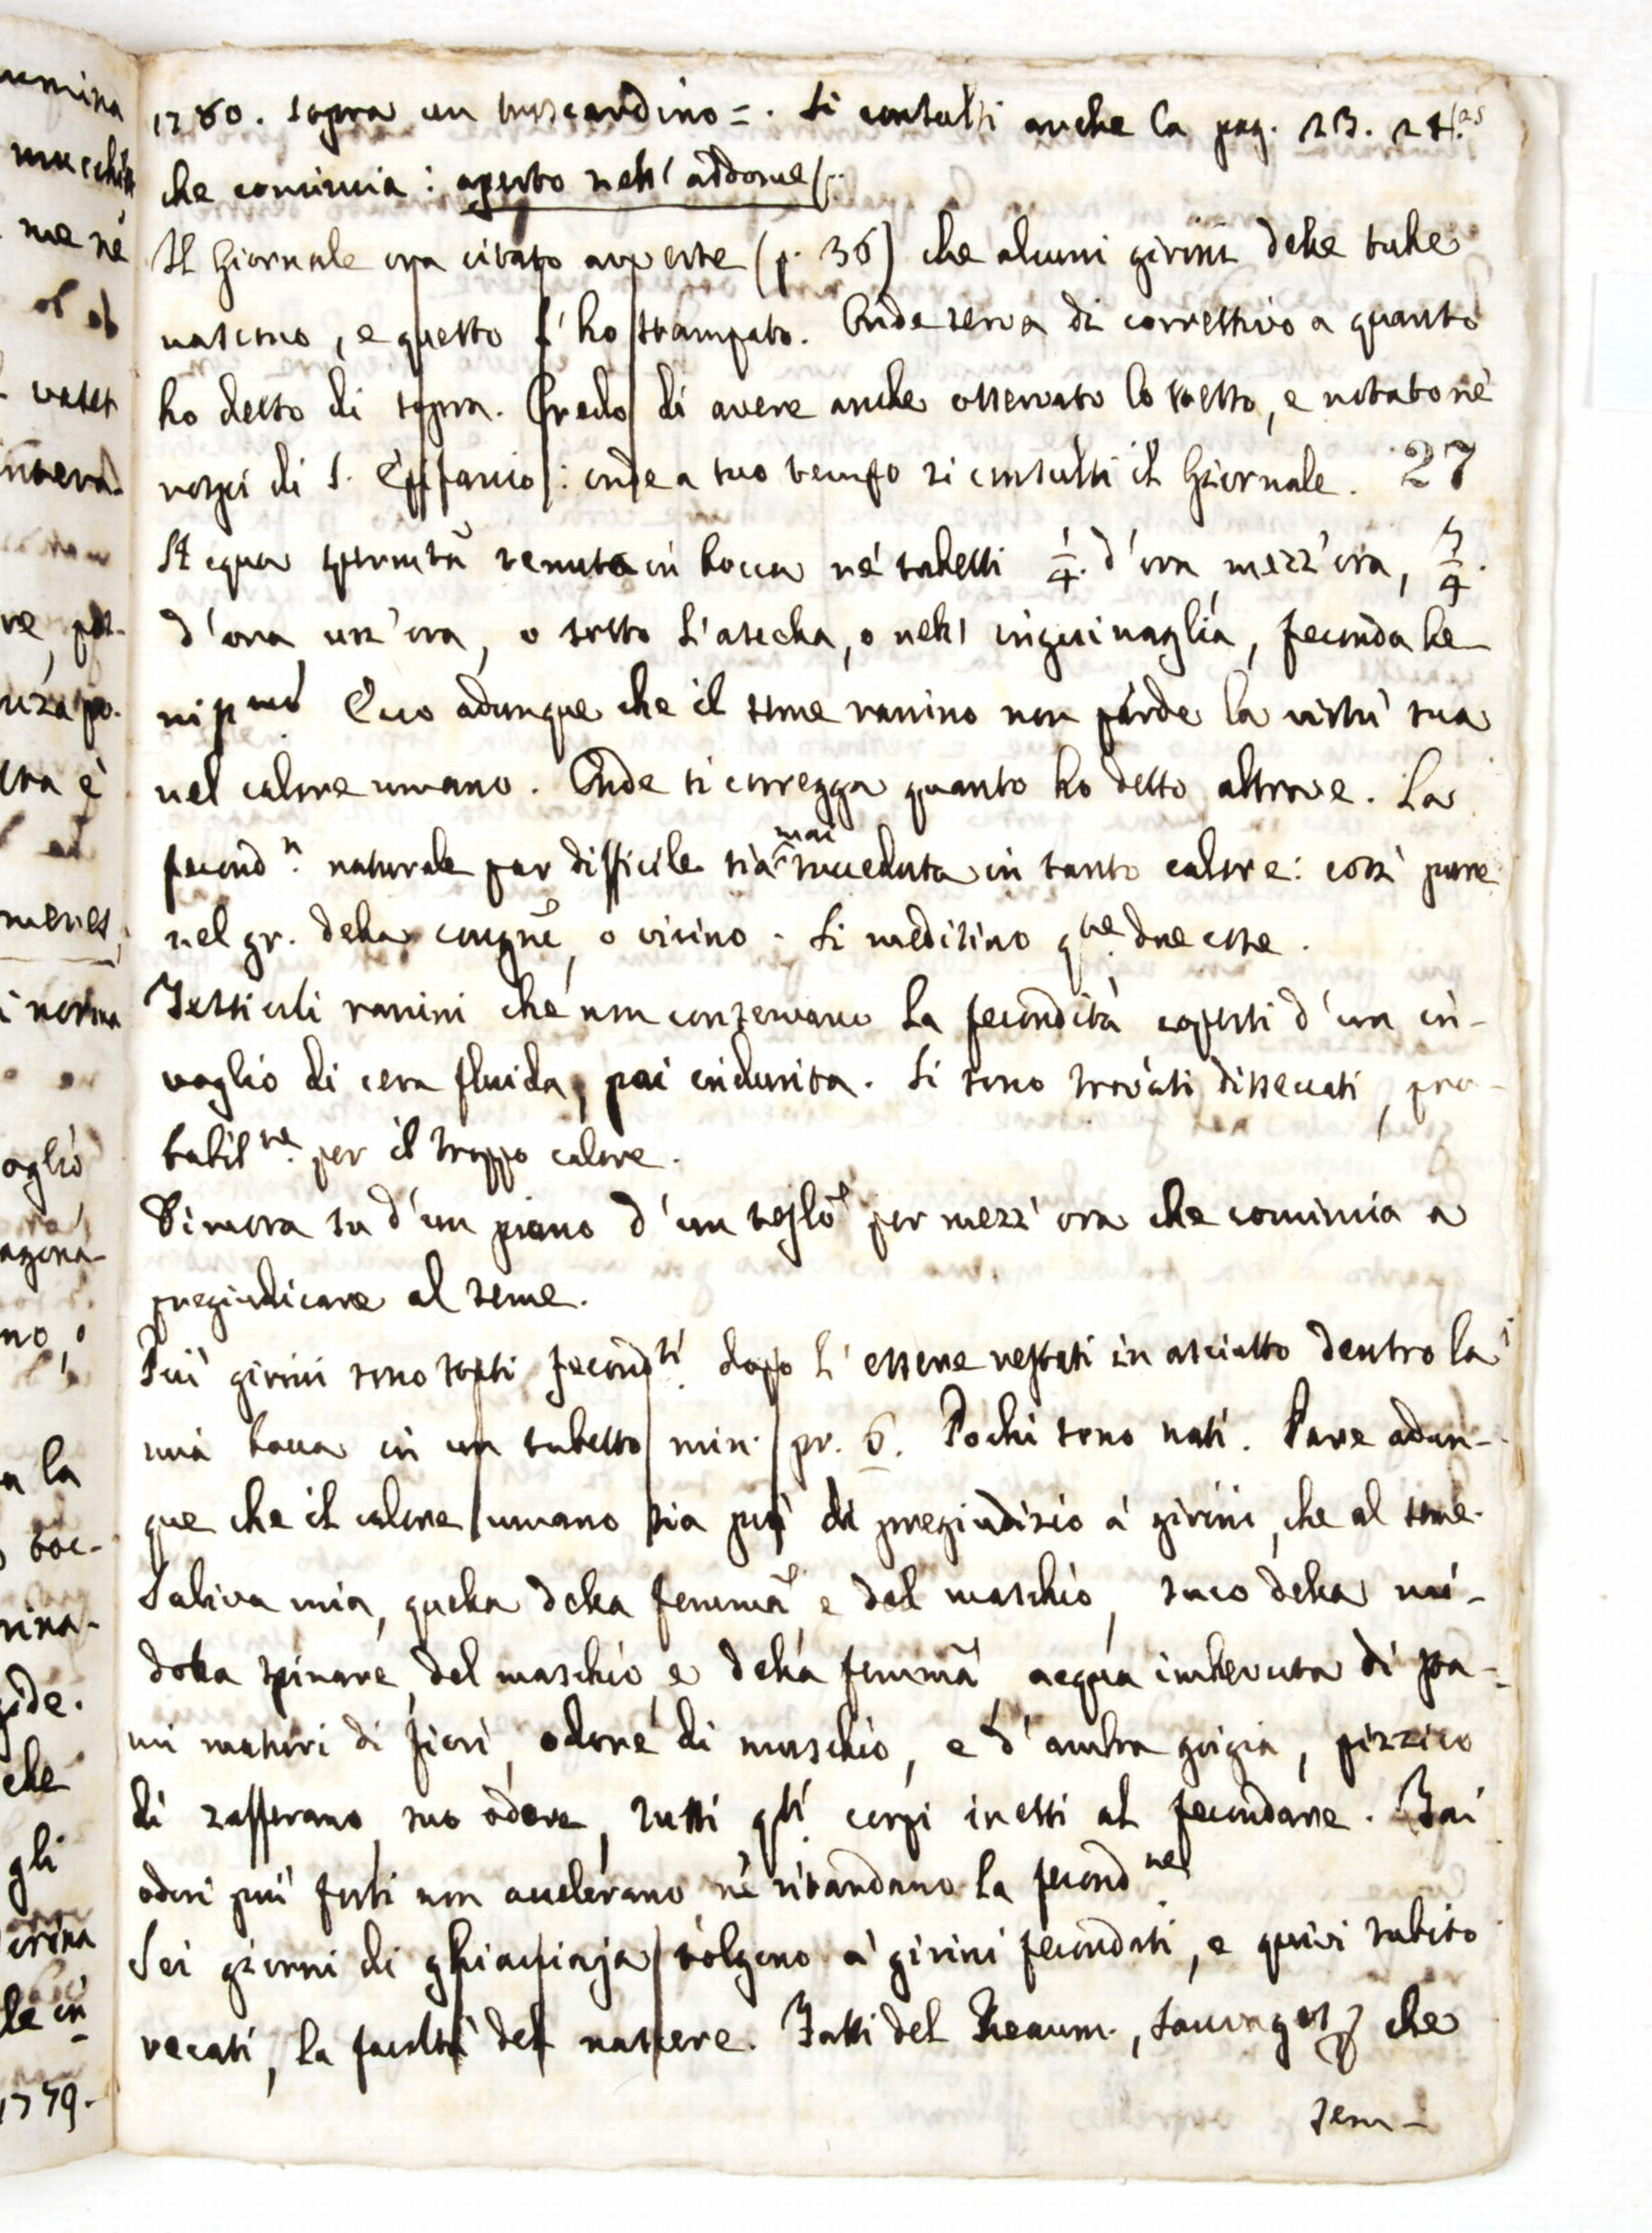 1780. sopra un moscardino =. Si consulti anche la pag. 23. 24.
che comincia: aperto nell'addome/..
Il Giornale ora citato avverte (p. 36) che alcuni girini delle tube
nascono, e questo l'ho stampato. Onde serva di correttivo a quanto
ho detto di sopra. Credo di avere anche osservato lo stesso, e notato ne'
rospi di S. Epifanio: onde a suo tempo si consulti il Giornale. 27
Acqua spermat.ª tenuta in bocca ne' tubetti 1/4. d'ora, mezz'ora, 3/4.
d'ora, un'ora, o sotto l'ascella, o nell'inguinaglia, feconda be-
nis.mo Ecco adunque che il seme ranino non perde la virtù sua
nel calore umano. Onde si corregga quanto ho detto altrove. La
fecond.n naturale par difficile sia mai succeduta in tanto calore: così pure
nel gr. della congne, o vicino. Si meditino q.ue due cose.
Testicoli ranini che non conservano la fecondità coperti d'un in-
voglio di cera fluida, poi indurita. Si sono trovati disseccati, pro-
babil.te per il troppo calore.
Dimora su d'un piano d'un per mezz'ora che comincia a
pregiudicare al seme.
Più girini sono stati fecond.ti dopo l'essere restati in asciutto dentro la
mia bocca in un tubetto min. pr. 6. Pochi sono nati. Pare adun-
que che il calore umano sia più di pregiudizio a' girini, che al seme.
Saliva mia, quella della femm.ª e del maschio, suco della mi-
dolla spinare, del maschio e della femm.ª acqua imbevuta di sta-
mi maturi di fiori, odore di muschio, e d'ambra grigia, pizzico
di zafferano, suo odore, tutti q.sti corpi inetti al fecondare. Tai
odori più forti non accelerano, nè ritardano la fecond.ne
Sei giorni di ghiacciaja tolgono a' girini fecondati, e quivi subito
recati, la facoltà del nascere. Fatti del Reaum., Sauvages che
sem-